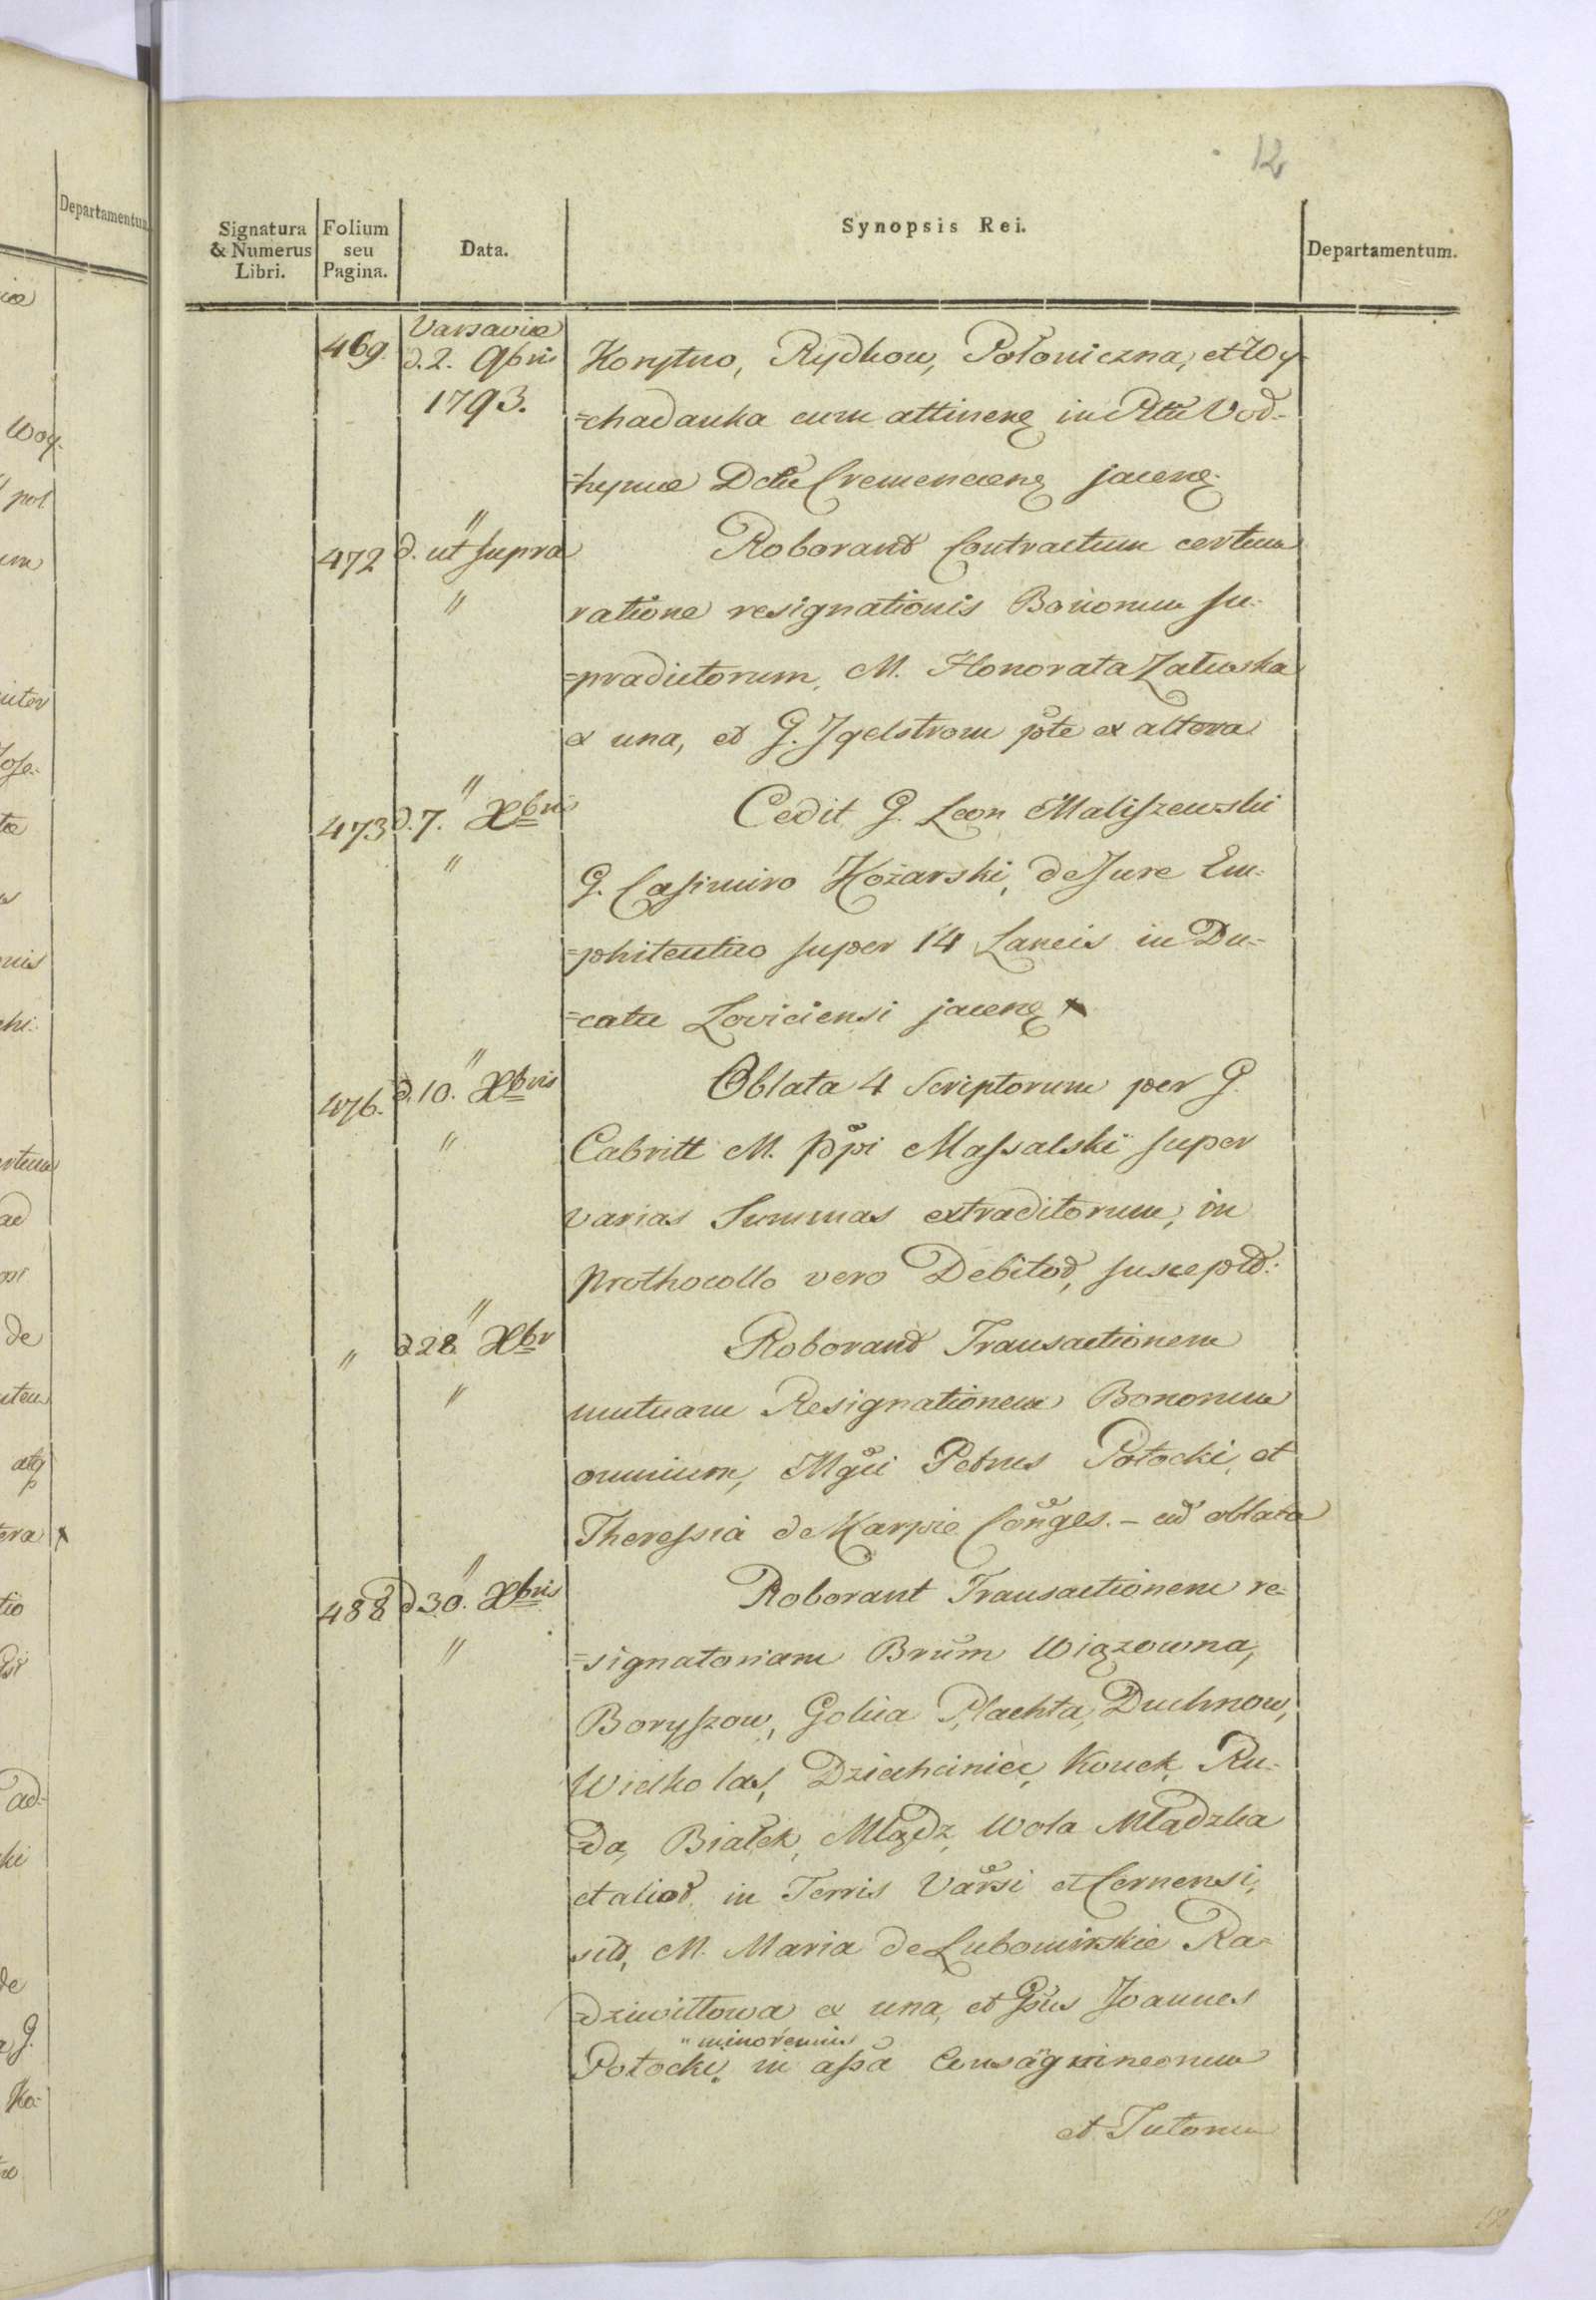 12
Departamentum.
Signatura & Numerus Libri.
Folium seu Pagina.
Data.
Synopsis Rei.
Departamentum.
469. Varsaviæ d. 2. 9bris 1793. Korytno, Rydkow, Połoniczna, et Wy-
=chadanka cum attinen in Pttu Vod-
=hyniæ Dctu Cremenecen jacen.
472 d. ut supra Roborand Contractum certum
ratione resignationis Bonorum su-
=pradictorum, M. Honorata Załuska
ex una, et G. Jgelstrom pte ex altera
473 d. 7. Xbris Cedit G. Leon Maliszewski
G. Casimiro Kożarski, de Jure Em-
=phiteutico super 14 Laneis in Du-
=catu Loviciensi jacen
476. d. 10. Xbris Oblata 4 Scriptorum per G.
Cabritt M. Ppi Massalski super
varias Summas extraditorum, in
Prothocollo vero Debitod, suscept:
" d 28. Xbr Roborand Transactionem
mutuam Resignationem Bonorum
omnium, Mgci Petrus Potocki, et
Theressia de Karpie Conges. – eid oblata
488 d 30. Xbris Roborant Transactionem re-
=signatoriam Brum Wiązowna,
Boryszow, Golica Plachta, Duchnow,
Wielko las, Dziechciniec, Kouck, Ru-
=da, Białek, Mlądz, Wola Mlądzka
et aliod. in Terris Varsi et Cernensi,
sit, M. Maria de Lubomirskie Ra-
=dziwiłłowa ex una, et Gsus Joannes
" minorennis
Potocki, in assa Consagvineorum
et Tutorum